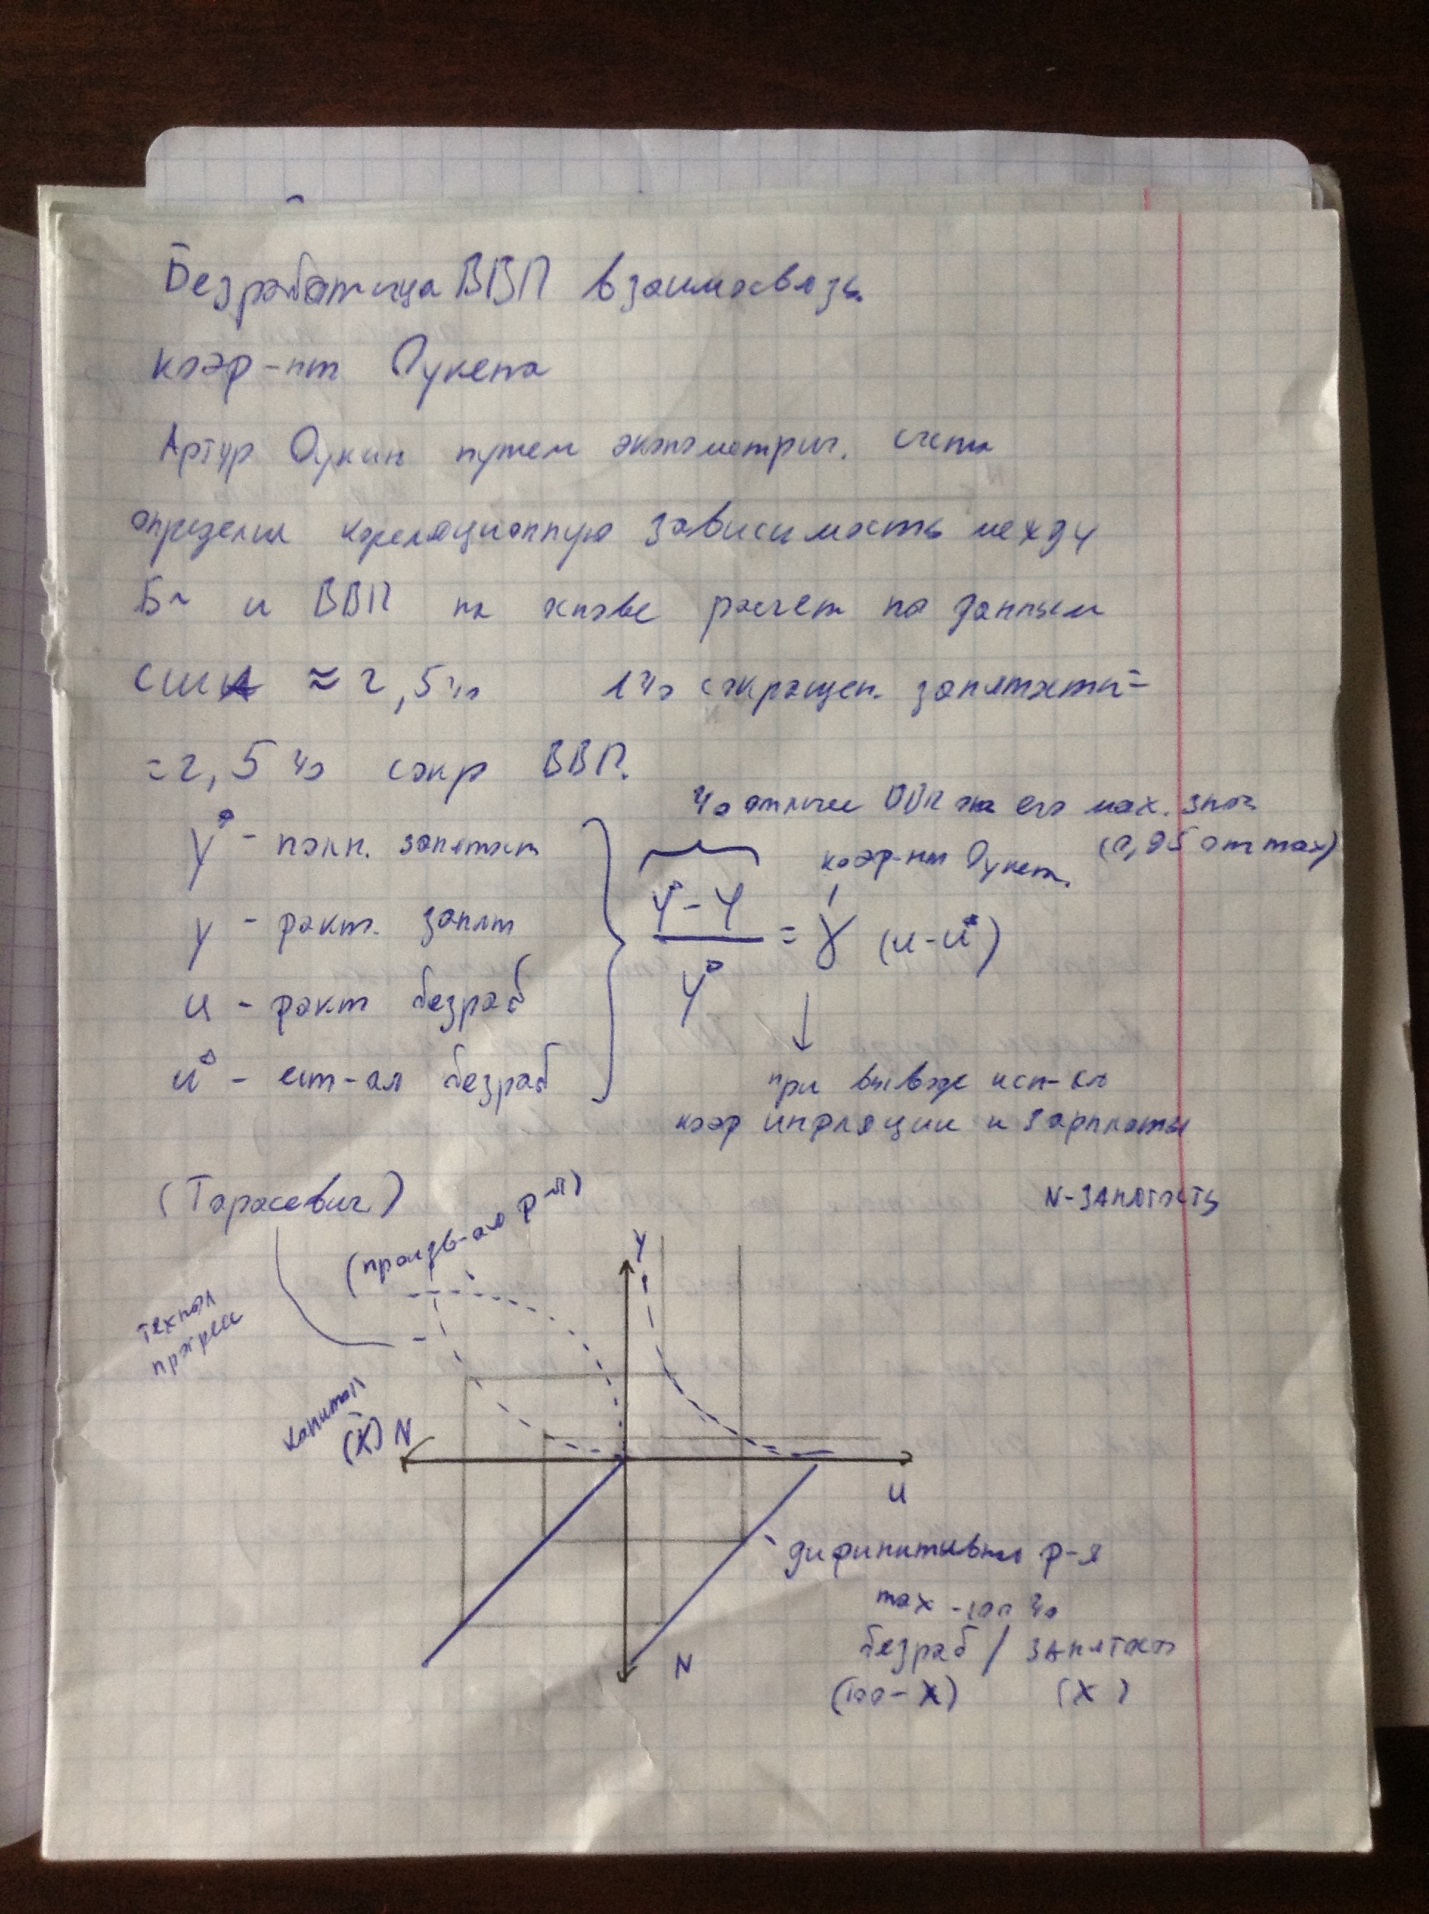 Безработица ВВП взаимосвязь
коэф-нт Оукена
Артур Оукин путем эконометрич. счета
определил кореляционную зависимость между
Бз и ВВП на основе расчет по данным
США ≈ 2,5%   1% сокращен. занятости =
= 2,5% сокр ВВП.
% отличие ВВП от его мах. знач
(0,95 от max)
коэф-нт Оукена
Y* - полн. занятост
y - факт. занят
u - факт безраб
u* - ест-ая безраб
Y* - Y / Y* = γ (u - u*)
при выводе исп-сь
коэф инфляции и зарплаты
(Тарасевич)
(произв-ая ф-я)
N - занятость
технол
прогресс
капитал
(K) N
Y
u
дифинитивная ф-я
max - 100%
безраб / занятост
(100 - X)   (X)
N